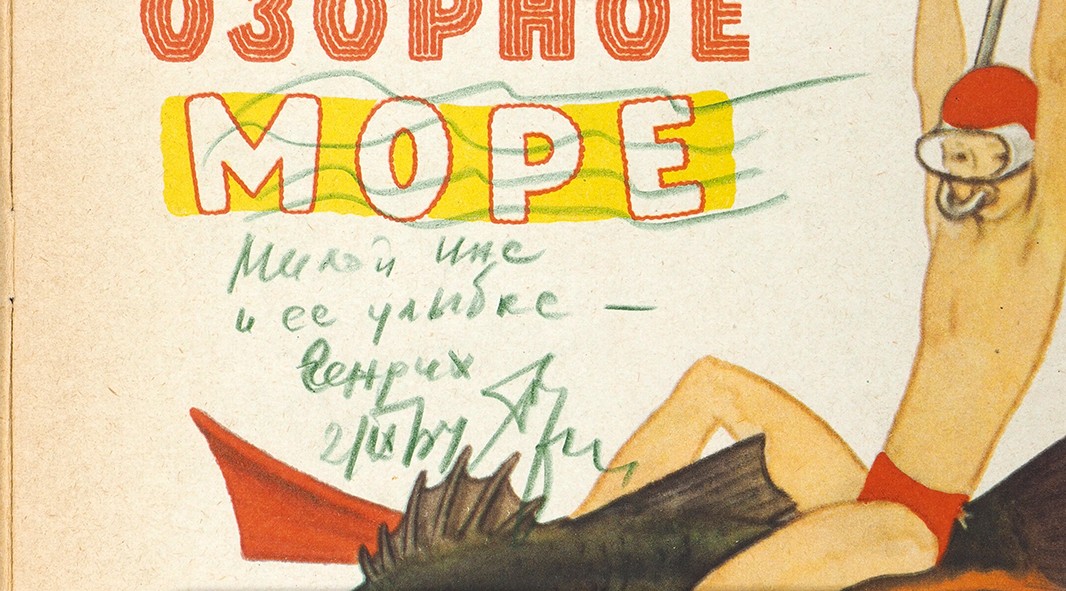 ОЗОРНОЕ
МОРЕ
Милой Инс
и ее улыбке —
Генрих